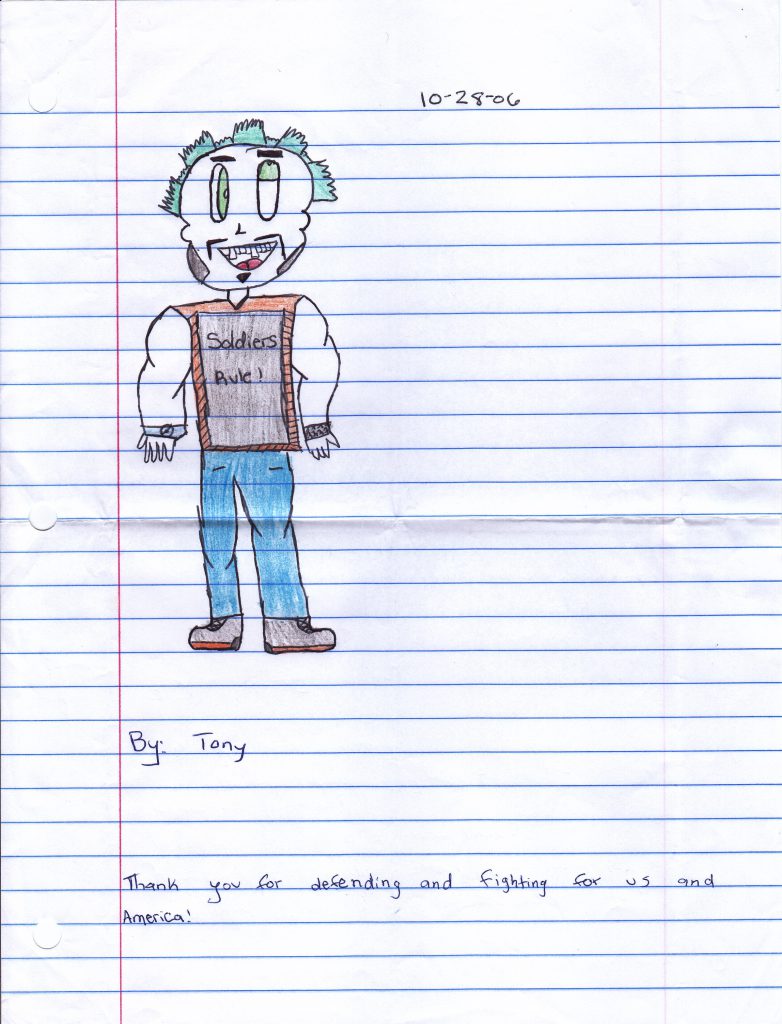 10-28-06
Soldiers
Rule!
By: Tony
Thank you for defending and fighting for us and
America!